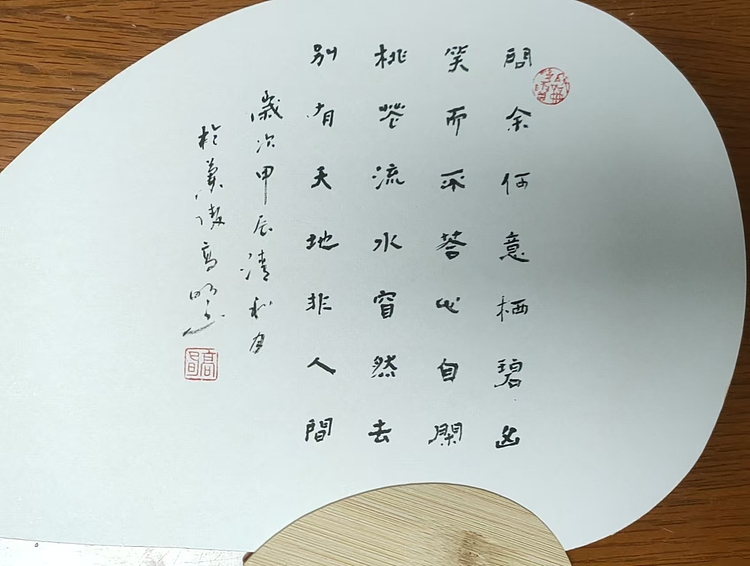 問余何意栖碧山
笑而不荅心自閑
桃花流水窅然去
別有天地非人間
歲次甲辰清和月
於陵高